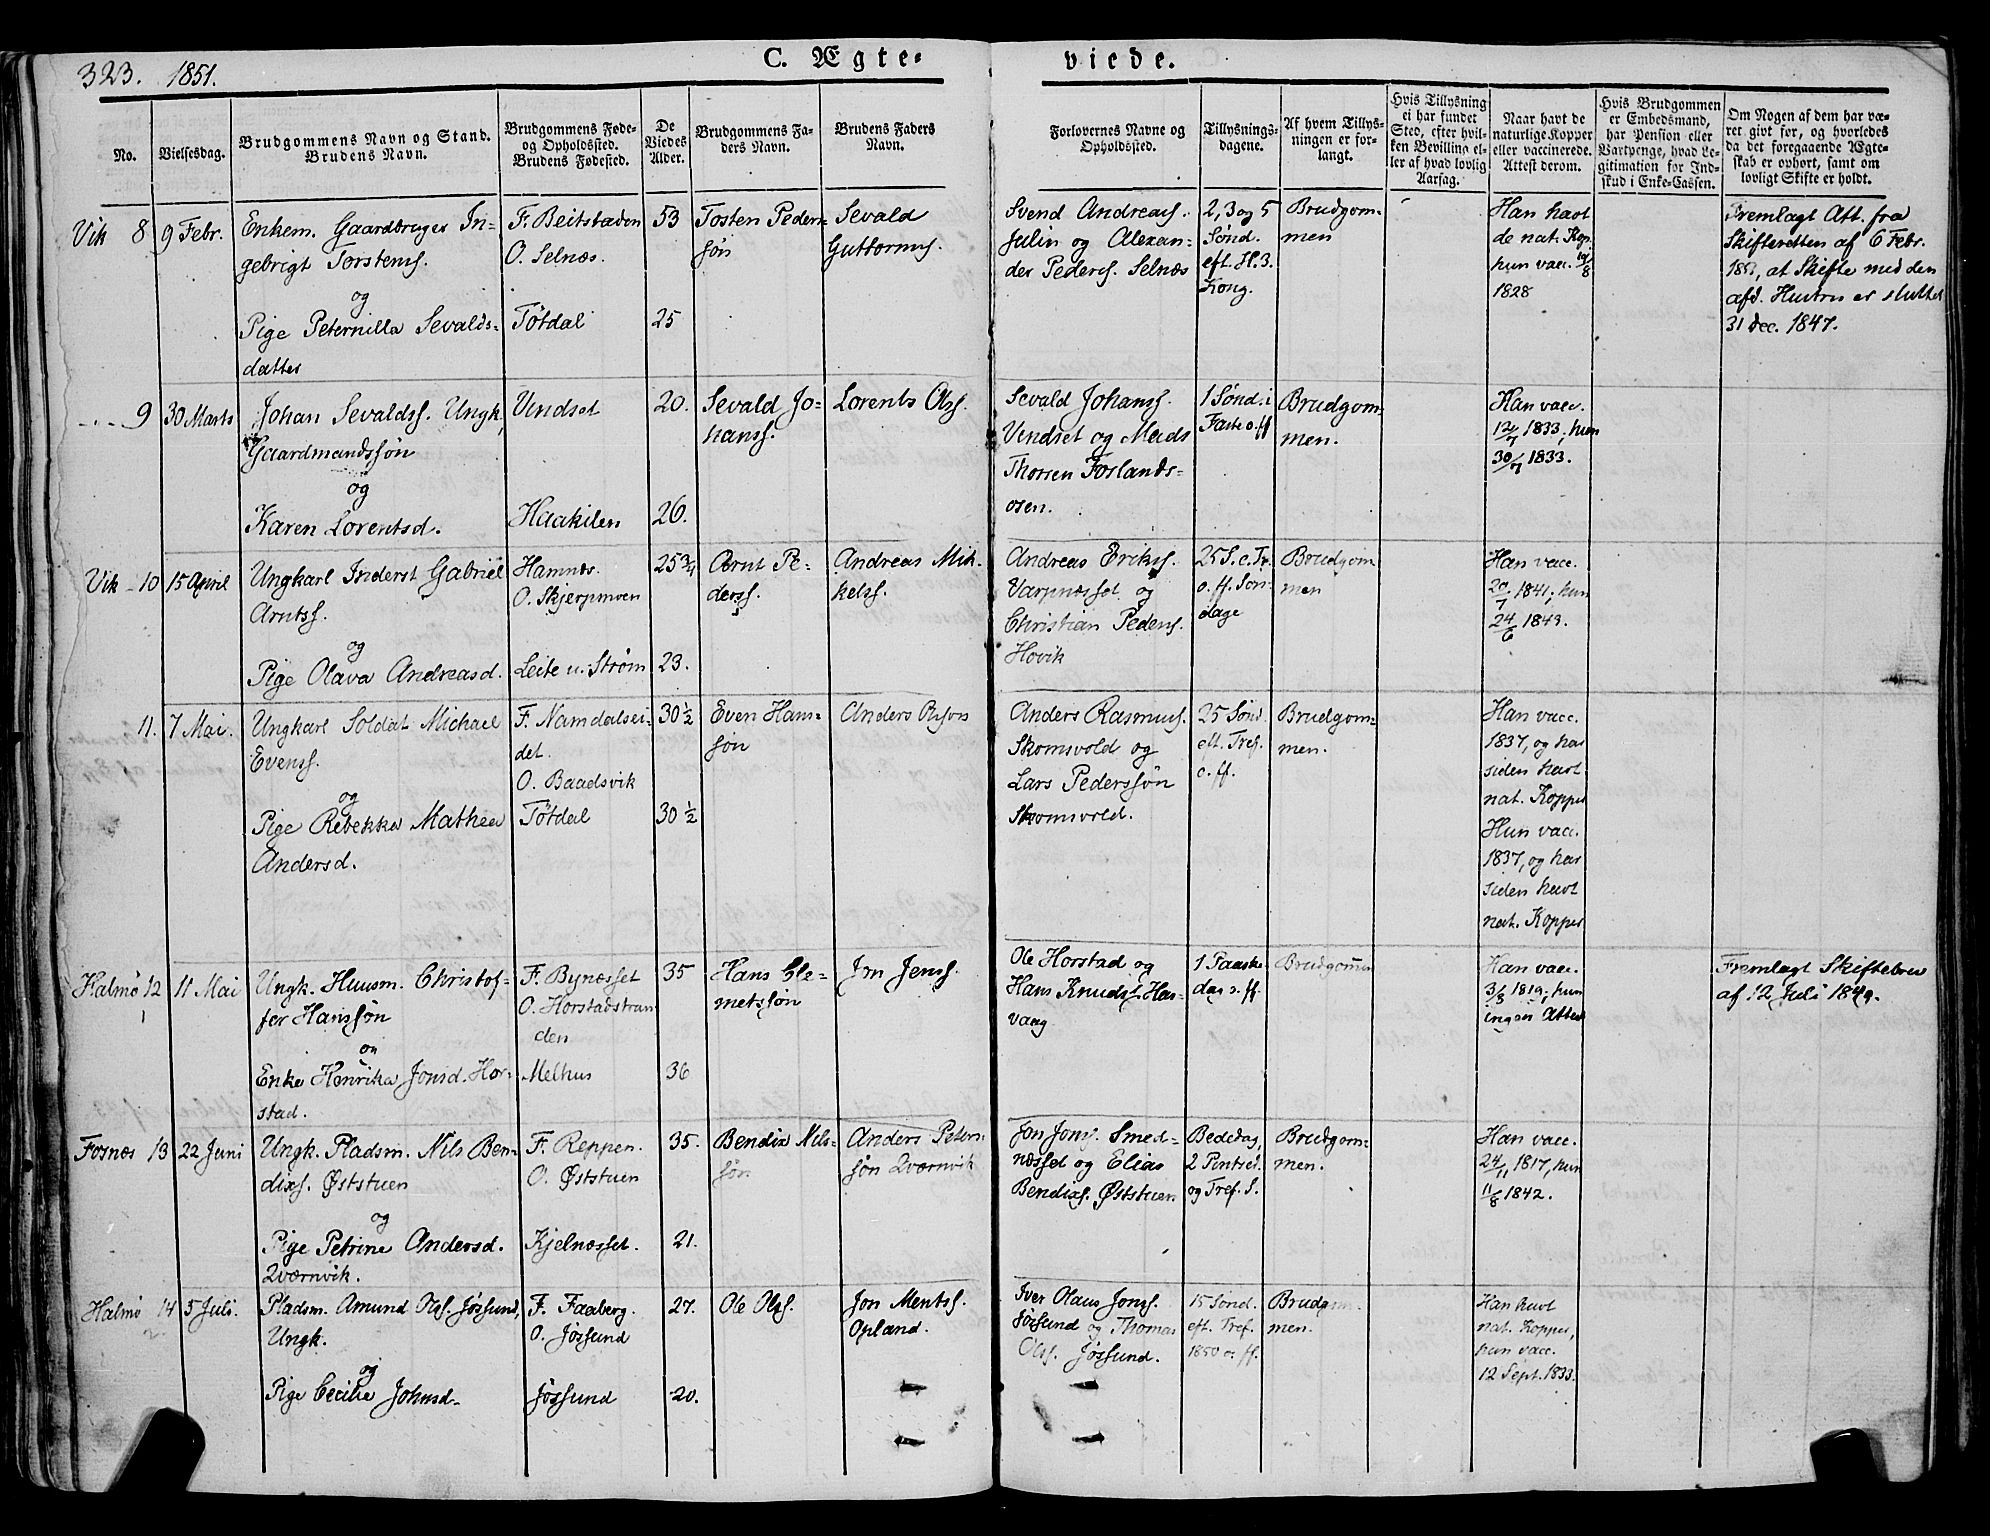 323. 1851.
C. Ægte-
viede.
No.
Vielsesdag.
Brudgommens Navn og Stand.
Brudens Navn.
Brudgommens Føde-
og Opholdssted.
Brudens Fødested.
De
Viedes
Alder.
Brudgommens Fa-
ders Navn.
Brudens Faders
Navn.
Forlovernes Navne og
Opholdssted.
Tillysnings-
dagene.
Af hvem Tillys-
ningen er for-
langt.
Hvis Tillysning
ei har fundet
Sted, efter hvil-
ken Bevilling el-
ler af hvad lovlig
Aarsag.
Naar havt de
naturlige Kopper
eller vaccinerede.
Attest derom.
Hvis Brudgommen
er Embedsmand,
har Pension eller
Vartpenge, hvad Le-
gitimation for Ind-
skud i Enke-Cassen.
Om Nogen af dem har væ-
ret givt før, og hvorledes
da det foregaaende Ægte-
skab er ophørt, samt om
lovligt Skifte er holdt.
Vik 8
9 Febr.
Enkem. Gaardbruger In-
gebrigt Torstens.
og
Pige Peternilla Sevalds-
datter
F. Beitstaden
O. Selnæs.
Tötdal
53
25
Tosten Peder-
søn
Sevald
Guttorms.
Svend Andreas.
Julin og Alexan-
der Peders. Selnæs
2, 3 og 5
Sønd.
eft. H. 3.
Kong.
Brudgom-
men
Han havt
de nat. Kop.
hun vacc. 19/8
1828
Fremlagt Att. fra
Skifteretten af 6 Febr.
1851, at Skifte med den
afd. Hustru er sluttet
31 Dec. 1847.
9
30 Marts
Johan Sevaldss. Ungk,
Gaardmandssøn
og
Karen Lorentsd.
Vendset
Haakilen
20.
26.
Sevald Jo-
hanss.
Lorents Olss.
Sevald Johanss.
Vendset og Mads
Thorsen Foslands-
osen.
1 Sønd. i
Faste o. ff
Brudgom-
men.
Han vacc.
12/7 1833, hun
30/7 1833.
Vik 10
15 April
Ungkarl Inderst Gabriel
Arntss.
og
Pige Olava Andreasd.
Hamnes.
O. Skjerpmoen
Leite u. Strøm
25 3/4
23.
Arnt Pe-
derss.
Andreas Mik-
kelss.
Andreas Erikss.
Varpnæsset og
Christian Peders.
Hovik
25 S. e. Tr.
o. ff. Søn-
dage
Brudgom
men
Han vacc.
20/7 1841, hun
24/6 1843.
11.
7 Mai.
Ungkarl Soldat Michael
Evenss.
og
Pige Rebekka Mathea
Andersd.
F. Namdalsei-
det.
O. Baadsvik
Tötdal
30 1/2
30 1/2
Even Hans-
søn
Anders
Anders Rasmuss.
Skomsvold og
Lars Pederssøn
Skomsvold.
25 Sønd.
eft. Tref.
o. ff.
Brudgom-
men.
Han vacc.
1837, og har
siden havt
nat. Kopper
Hun vacc.
1837, og har
siden havt
nat. Kopper
Halmø 12
11 Mai
Ungk. Huusm. Christof-
fer Hanssøn
og
Enke Henrika Jonsd. Hor-
stad.
F. Bynæsset
O. Horstadstran
den
Melhus
35
36
Hans Cle-
metssøn
Jon Jenss.
Ole Horstad og
Hans Knuds. Has-
vaag
1 Paaske
dag o. ff.
Brudgommen
Han vacc.
3/8 1819, hun
ingen Attest
Fremlagt Skiftebrev
af 12 Juli 1849.
Fosnæs 13
22 Juni
Ungk. Pladsm. Nils Ben-
dixs. Øststuen
og
Pige Petrine Andersd.
Qværnvik.
F. Reppen.
O. Øststuen
Kjelnæsset.
35.
21.
Bendix Nils-
søn
Anders Peter-
søn Qværnvik
Jon Jons. Smed-
næsset og Elias
Bendixs. Øststuen
Bededag,
2 Pintsed.
og Tref. S.
Brudgom-
men.
Han vacc.
24/11 1817, hun
11/8 1842.
Halmø 14
2
5 Juli.
Pladsm. Amund Ols. Jøssund,
Ungk.
og
Pige Cecilie Johnsd.
F. Faaberg.
O. Jøssund
Jøssund
27.
20.
Ole Olss.
Jon Mentss.
Opland.
Iver Olaus Jonss.
Jøssund og Thomas
Olss. Jøssund.
15 Sønd.
eft. Tref.
1850 o. ff.
Brudgom-
men.
Han havt
nat. Kopper,
hun vacc.
12 Sept. 1833.